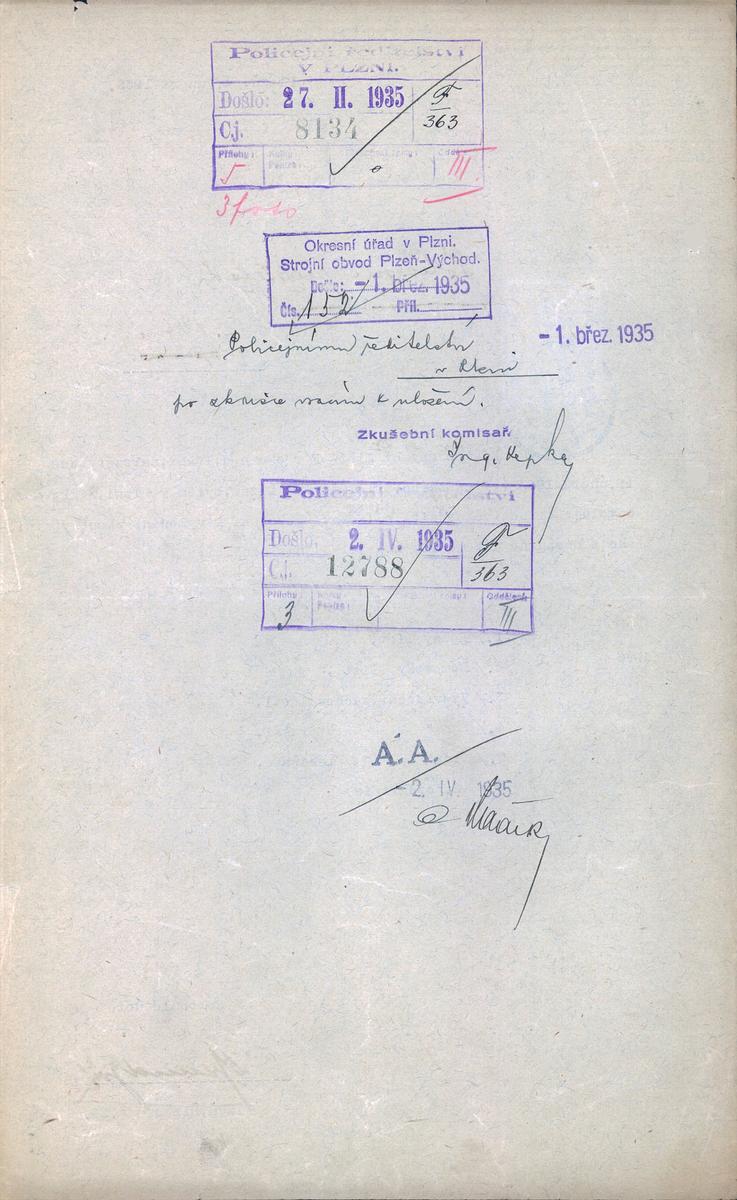 Policejní ředitelství
V PLZNI.
Došlo: 27. II. 1935
F
363
Čj. 8134
Přílohy: 5
III
3 foto
Okresní úřad v Plzni.
Strojní obvod Plzeň-Východ.
Došlo: -1. břez. 1935
Čís. 152 Příl.
-1. břez. 1935
Policejnímu ředitelství
v Plzni
po zkoušce vracím k uložení.
Zkušební komisař.
Ing.
Policejní ředitelství
Došlo. 2. IV. 1935
F
363
Č.j. 12788
Přílohy: 3
Oddělení: III
A.A.
-2. IV. 1935